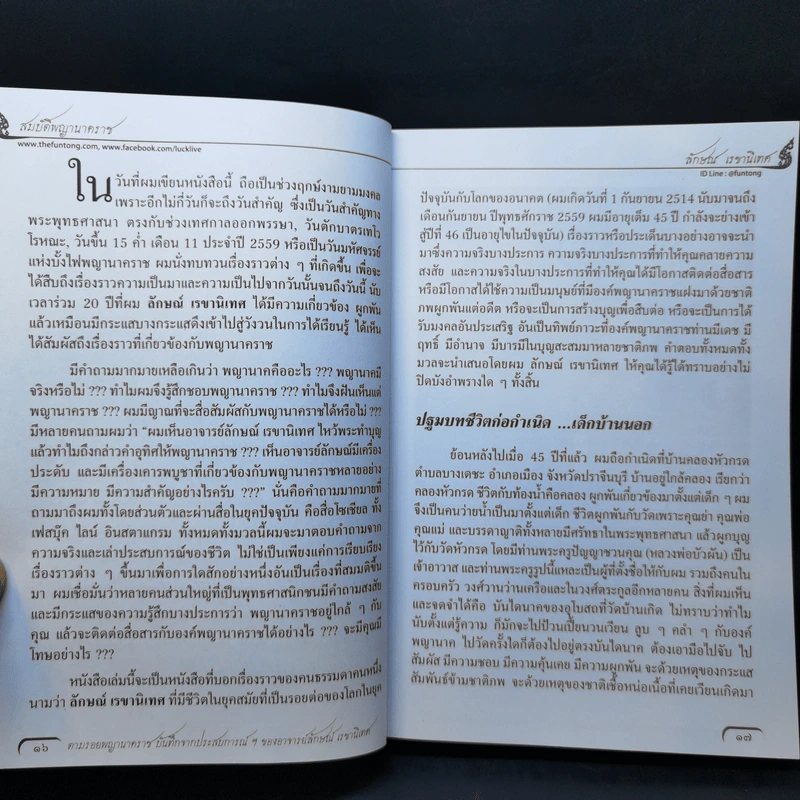 สมบัติพญานาคราช
www.thefuntong.com, www.facebook.com/lucklive
ใน วันที่ผมเขียนหนังสือนี้ ถือเป็นช่วงฤกษ์งามยามมงคล
เพราะอีกไม่กี่วันก็จะถึงวันสำคัญ ซึ่งเป็นวันสำคัญทาง
พระพุทธศาสนา ตรงกับช่วงเทศกาลออกพรรษา, วันตักบาตรเทโว
โรหณะ, วันขึ้น 15 ค่ำ เดือน 11 ประจำปี 2559 หรือเป็นวันมหัศจรรย์
แห่งบั้งไฟพญานาคราช ผมนั่งทบทวนเรื่องราวต่าง ๆ ที่เกิดขึ้น เพื่อจะ
ได้สืบถึงเรื่องราวความเป็นมาและความเป็นไปจากวันนั้นจนถึงวันนี้ นับ
เวลาร่วม 20 ปีที่ผม ลักษณ์ เรขานิเทศ ได้มีความเกี่ยวข้อง ผูกพัน
แล้วเหมือนมีกระแสบางกระแสดึงเข้าไปสู่วังวนในการได้เรียนรู้ ได้เห็น
ได้สัมผัสถึงเรื่องราวที่เกี่ยวข้องกับพญานาคราช
มีคำถามมากมายเหลือเกินว่า พญานาคคืออะไร ??? พญานาคมี
จริงหรือไม่ ??? ทำไมผมจึงรู้สึกชอบพญานาคราช ??? ทำไมจึงฝันเห็นแต่
พญานาคราช ??? ผมมีญาณที่จะสื่อสัมผัสกับพญานาคราชได้หรือไม่ ???
มีหลายคนถามผมว่า “ผมเห็นอาจารย์ลักษณ์ เรขานิเทศ ไหว้พระทำบุญ
แล้วทำไมถึงกล่าวคำอุทิศให้พญานาคราช ??? เห็นอาจารย์ลักษณ์มีเครื่อง
ประดับ และมีเครื่องเคารพบูชาที่เกี่ยวข้องกับพญานาคราชหลายอย่าง
มีความหมาย มีความสำคัญอย่างไรครับ ???” นั่นคือคำถามมากมายที่
ถามมาถึงผมทั้งโดยส่วนตัวและผ่านสื่อในยุคปัจจุบัน คือสื่อโซเชียล ทั้ง
เฟสบุ๊ค ไลน์ อินสตาแกรม ทั้งหมดทั้งมวลนี้ผมจะมาตอบคำถามจาก
ความจริงและเล่าประสบการณ์ของชีวิต ไม่ใช่เป็นเพียงแค่การเรียบเรียง
เรื่องราวต่าง ๆ ขึ้นมาเพื่อการใดสักอย่างหนึ่งอันเป็นเรื่องที่สมมติขึ้น
มา ผมเชื่อมั่นว่าหลายคนส่วนใหญ่ที่เป็นพุทธศาสนิกชนมีคำถามสงสัย
และมีกระแสของความรู้สึกบางประการว่า พญานาคราชอยู่ใกล้ ๆ กับ
คุณ แล้วจะติดต่อสื่อสารกับองค์พญานาคราชได้อย่างไร ??? จะมีคุณมี
โทษอย่างไร ???
หนังสือเล่มนี้จะเป็นหนังสือที่บอกเรื่องราวของคนธรรมดาคนหนึ่ง
นามว่า ลักษณ์ เรขานิเทศ ที่มีชีวิตในยุคสมัยที่เป็นรอยต่อของโลกในยุค
๑๖ ตามรอยพญานาคราช บันทึกจากประสบการณ์ ฯ ของอาจารย์ลักษณ์ เรขานิเทศ
ลักษณ์ เรขานิเทศ
ID Line : @funtong
ปัจจุบันกับโลกของอนาคต (ผมเกิดวันที่ 1 กันยายน 2514 นับมาจนถึง
เดือนกันยายน ปีพุทธศักราช 2559 ผมมีอายุเต็ม 45 ปี กำลังจะย่างเข้า
สู่ปีที่ 46 เป็นอายุไขในปัจจุบัน) เรื่องราวหรือประเด็นบางอย่างอาจจะนำ
มาซึ่งความจริงบางประการ ความจริงบางประการที่ทำให้คุณคลายความ
สงสัย และความจริงในบางประการที่ทำให้คุณได้มีโอกาสติดต่อสื่อสาร
หรือมีโอกาสได้ใช้ความเป็นมนุษย์ที่มีองค์พญานาคราชแฝงมาด้วยชาติ
ภพผูกพันแต่อดีต หรือจะเป็นการสร้างบุญเพื่อสืบต่อ หรือจะเป็นการได้
รับมงคลอันประเสริฐ อันเป็นทิพย์ภาวะที่องค์พญานาคราชท่านมีเดช มี
ฤทธิ์ มีอำนาจ มีบารมีในบุญสะสมมาหลายชาติภพ คำตอบทั้งหมดทั้ง
มวลจะนำเสนอโดยผม ลักษณ์ เรขานิเทศ ให้คุณได้รู้ได้ทราบอย่างไม่
ปิดบังอำพรางใด ๆ ทั้งสิ้น
ปฐมบทชีวิตก่อกำเนิด ...เด็กบ้านนอก
ย้อนหลังไปเมื่อ 45 ปีที่แล้ว ผมถือกำเนิดที่บ้านคลองหัวกรด
ตำบลบางเดชะ อำเภอเมือง จังหวัดปราจีนบุรี บ้านอยู่ใกล้คลอง เรียกว่า
คลองหัวกรด ชีวิตกับท้องน้ำคือคลอง ผูกพันเกี่ยวข้องมาตั้งแต่เด็ก ๆ ผม
จึงเป็นคนว่ายน้ำเป็นมาตั้งแต่เด็ก ชีวิตผูกพันกับวัดเพราะคุณย่า คุณพ่อ
คุณแม่ และบรรดาญาติทั้งหลายมีศรัทธาในพระพุทธศาสนา แล้วผูกบุญ
ไว้กับวัดหัวกรด โดยมีท่านพระครูปัญญาชวนคุณ (หลวงพ่อบัวผัน) เป็น
เจ้าอาวาส และท่านพระครูรูปนี้แหละเป็นผู้ที่ตั้งชื่อให้กับผม รวมถึงคนใน
ครอบครัว วงศ์วานว่านเครือและในวงศ์ตระกูลอีกหลายคน สิ่งที่ผมเห็น
และจดจำได้คือ บันไดนาคของอุโบสถที่วัดบ้านเกิด ไม่ทราบว่าทำไม
นับตั้งแต่รู้ความ ก็มักจะไปป้วนเปี้ยนวนเวียน ลูบ ๆ คลำ ๆ กับองค์
พญานาค ไปวัดครั้งใดก็ต้องไปอยู่ตรงบันไดนาค ต้องเอามือไปจับ ไป
สัมผัส มีความชอบ มีความคุ้นเคย มีความผูกพัน จะด้วยเหตุของกระแส
สัมพันธ์ข้ามชาติภพ จะด้วยเหตุของชาติเชื้อหน่อเนื้อที่เคยเวียนเกิดมา
๑๗